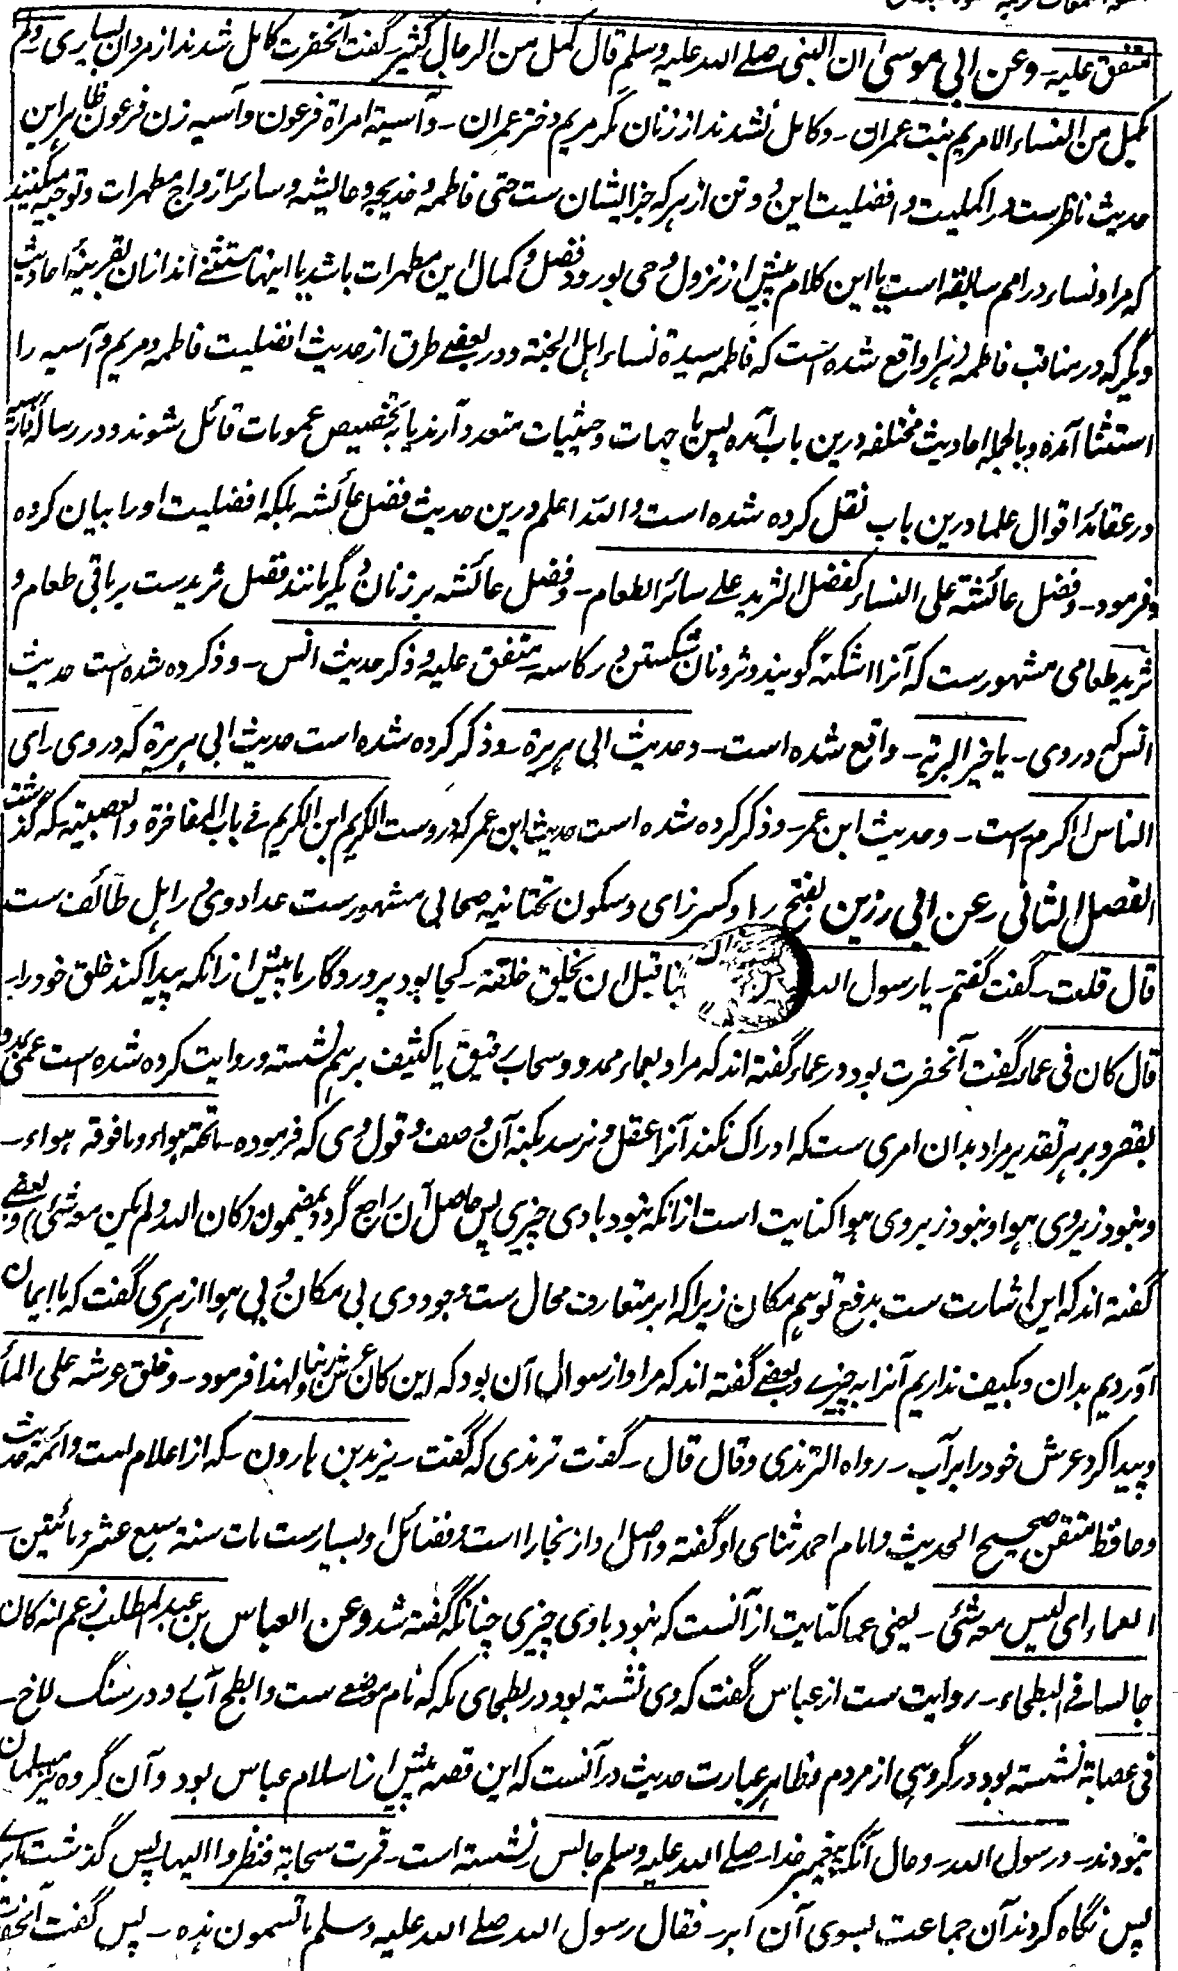 متفق علیه ـ وعن ابی موسی ان النبی صلے الله علیه وسلم قال کمل من الرجال کثیر ـ گفت آنحضرت کامل شدند از مردان بسیاری ولم
یکمل من النساء الا مریم بنت عمران ـ و کامل نشدند از زنان مگر مریم دختر عمران ـ وآسیة امراة فرعون و آسیه زن فرعون ظاهر این
حدیث ناظرست در اکملیت و افضلیت این دو تن از هر که جز ایشان ست حتی فاطمه و خدیجه و عائشه و سائر ازواج مطهرات و توجیه میکنند
که مراد نساء در امم سابقه است یا این کلام پیش از نزول وحی بود در فضل و کمال این مطهرات باشد یا اینها مستثنے اند ازان بقرینهٔ احادیث
دیگر که در مناقب فاطمه زهرا واقع شده است که فاطمه سیدة نساء اهل الجنة و در بعضے طرق از حدیث افضلیت فاطمه و مریم و آسیه را
استثنا آمده و بالجمله احادیث مختلفه درین باب آمده پس یا جهات و حیثیات متعدد آرند یا به تخصیص عمومات قائل شوند و در رسالهٔ فارسیه
در عقائد اقوال علما درین باب نقل کرده شده است و الله اعلم و درین حدیث فضل عائشه بلکه افضلیت او را بیان کرده
و فرمود ـ وفضل عائشة علی النساء کفضل الثرید علے سائر الطعام ـ و فضل عائشه بر زنان دیگر مانند فضل ثریدست بر باقی طعام و
ثرید طعامی مشهورست که آنرا اشکنه گویند و ثرو نان شکستن در کاسه ـ متفق علیه وذکر حدیث انس ـ و ذکر کرده شده است حدیث
انس که در وی ـ یا خیر البریة ـ واقع شده است ـ وحدیث ابی هریرة ـ و ذکر کرده شده است حدیث ابی هریرة که در وی ـ ای
الناس اکرم ست ـ وحدیث ابن عمر ـ و ذکر کرده شده است حدیث ابن عمر که در وست الکریم ابن الکریم فے باب المفاخرة والعصبیة که گذشت
الفصل الثانی ـ عن ابی رزین بفتح را و کسر زای و سکون تحتانیه صحابی مشهورست عداد وی در اهل طائف ست
قال قلت ـ گفت گفتم ـ یا رسول الله ربنا قبل ان یخلق خلقه ـ کجا بود پروردگار ما پیش ازانکه پیدا کند خلق خود را ـ
قال کان فی عماء ـ گفت آنحضرت بود در عماء گفته اند که مراد بعماء ممدود سحاب رقیق یا کثیف برهم نشسته و روایت کرده شده است عمی
بقصر و بر هر تقدیر مراد بدان امری ست که ادراک نکند آنرا عقل و نرسد بکنه آن وصف و قول وی که فرموده ـ ماتحته هواء وما فوقه هواء ـ
و نبود زیر وی هوا و نبود زبر وی هوا کنایت است ازانکه نبود با وی چیزی پس حاصل آن راجع گردد بمضمون (کان الله ولم یکن معه شئ) و بعضے
گفته اند که این اشارت ست بدفع توهم مکان زیرا که ابر متعارف محال ست وجود وی بی مکان و بی هوا ازهری گفت که ما ایمان
آوردیم بدان و بکیف نداریم آنرا به چیزے و بعضے گفته اند که مراد از سوال آن بود که این کان عرش ربنا و لهذا فرمود ـ وخلق عرشه علی الماء
و پیدا کرد عرش خود را بر آب ـ رواه الترمذی وقال قال ـ گفت ترمذی که گفت ـ یزید بن هارون ـ که از اعلام است و ائمه حدیث
و حافظ متقن صحیح الحدیث و امام احمد ثنای او گفته و اصل او از بخارا است و فضائل او بسیارست مات سنة سبع عشر و مائتین ـ
العماء ای لیس معه شئ ـ یعنی عما کنایت از آنست که نبود با وی چیزی چنانکه گفته شد وعن العباس بن عبد المطلب زعم انه کان
جالسا فے البطحاء ـ روایت ست از عباس گفت که وی نشسته بود در بطحای مکه که نام موضعے ست و ابطح آب رود در سنگ لاخ ـ
فی عصابة نشسته بود در گروهی از مردم و ظاهر عبارت حدیث در آنست که این قصه پیش از اسلام عباس بود و آن گروه نیز مسلمان
نبودند ـ و رسول الله ـ و حال آنکه پیغمبر خدا ـ صلے الله علیه وسلم جالس نشسته است ـ فمرت سحابة فنظروا الیها پس گذشت ابرے
پس نگاه کردند آن جماعت بسوی آن ابر ـ فقال رسول الله صلے الله علیه وسلم ما تسمون هذه ـ پس گفت آنحضرت